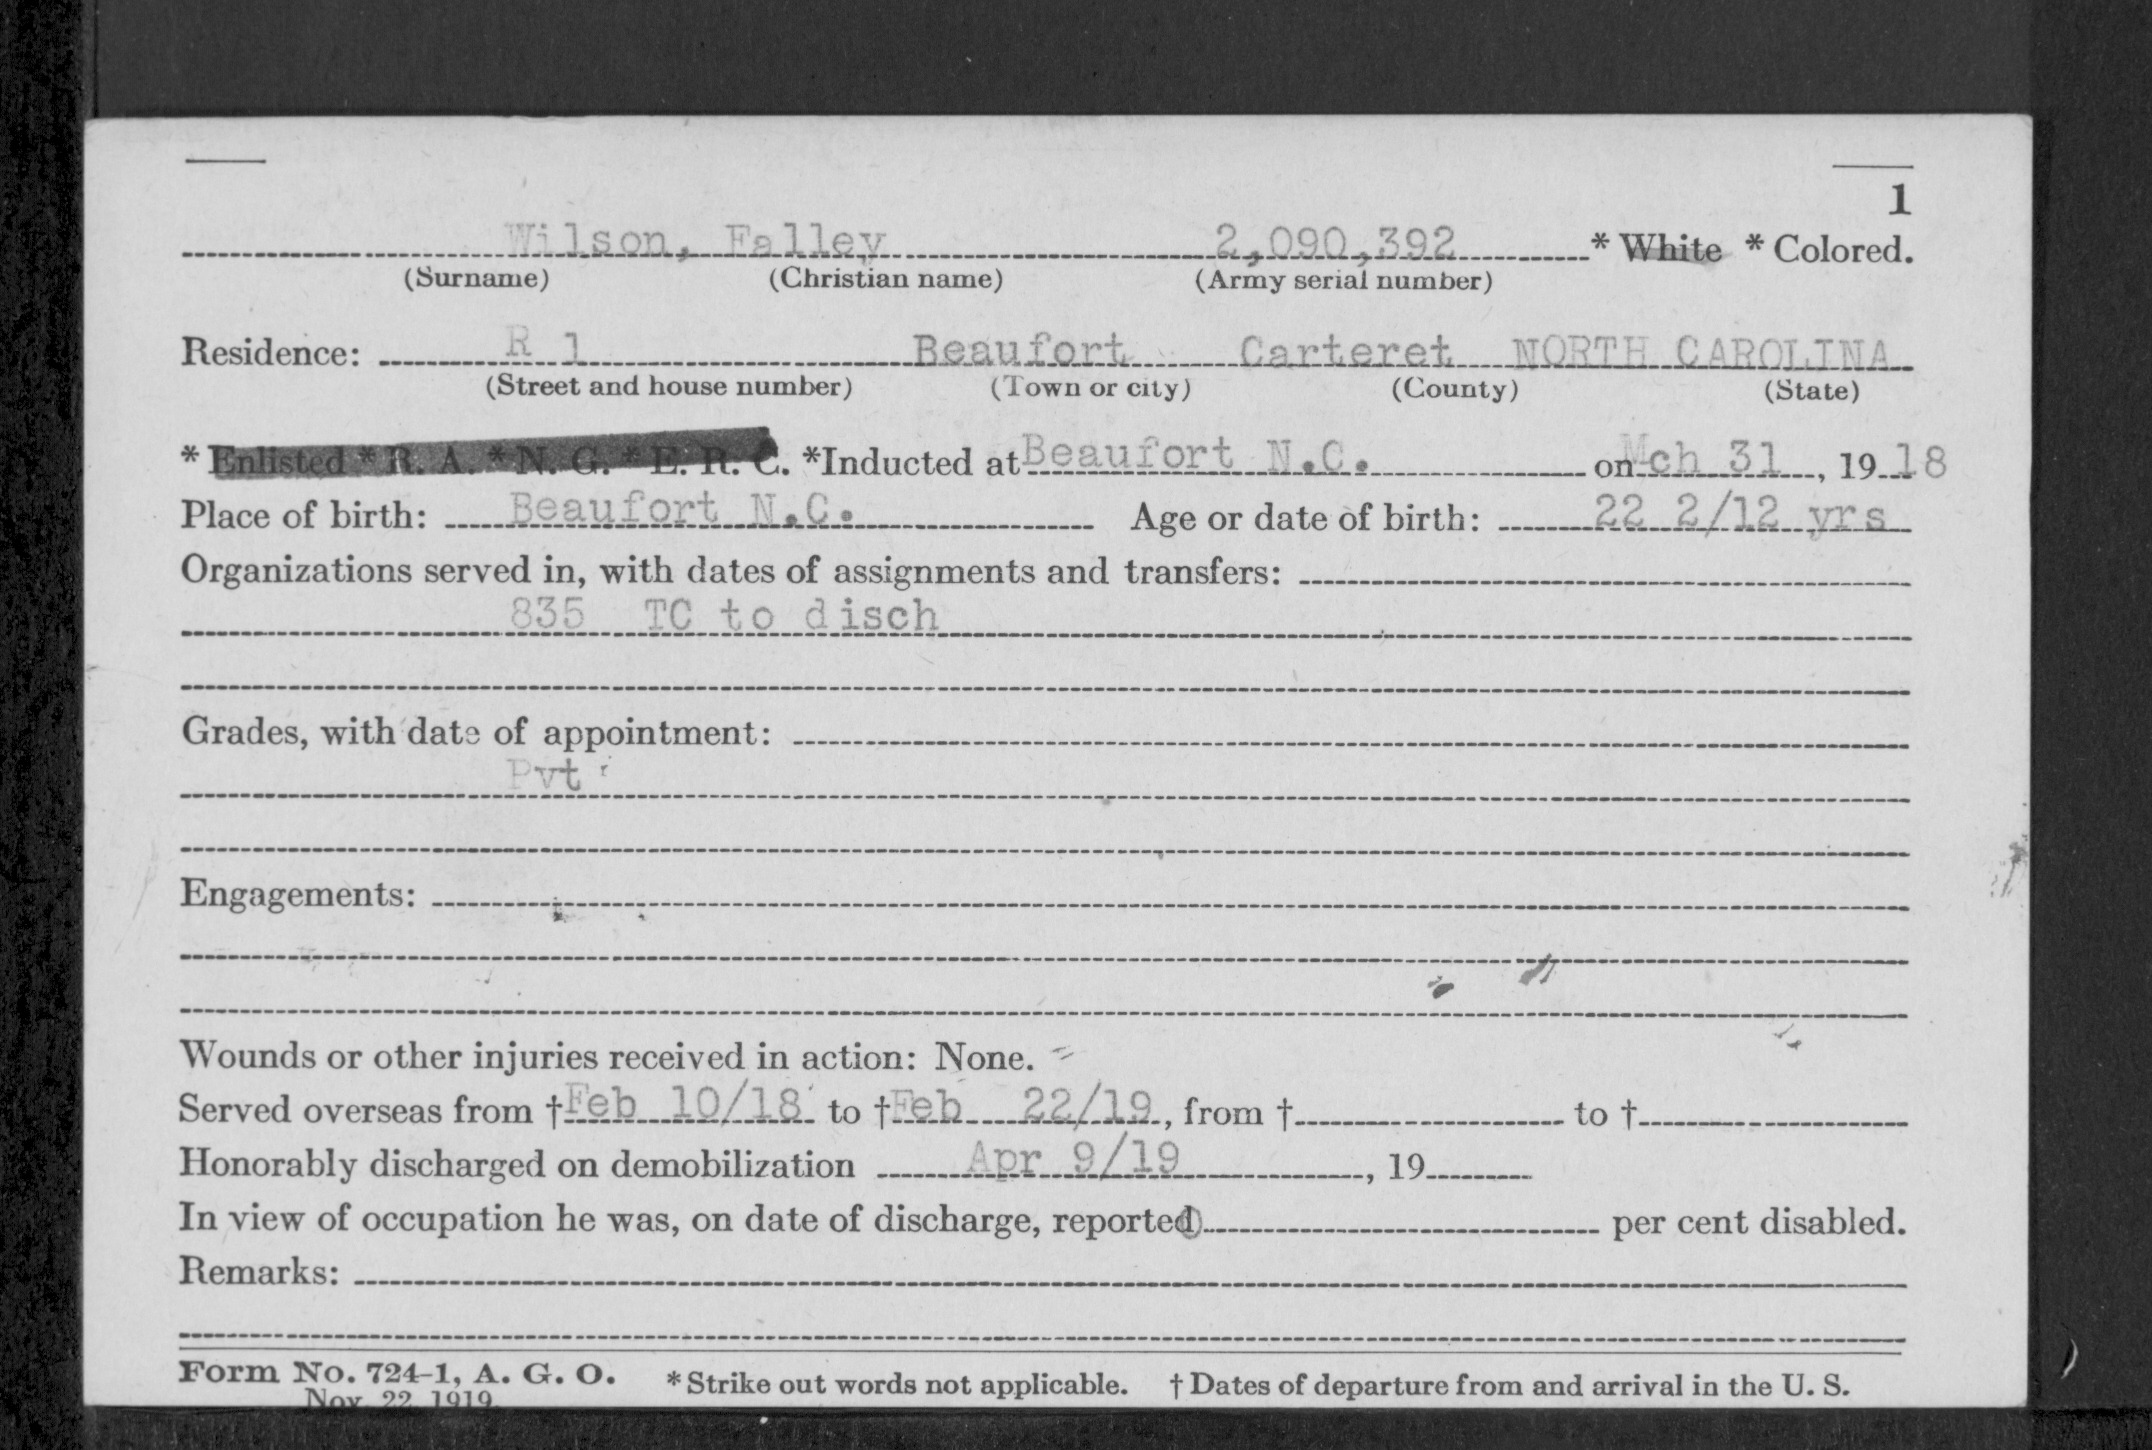 1
Wilson, Falley 2,090,392 * White * Colored.
(Surname) (Christian name) (Army serial number)
Residence: R 1 Beaufort Carteret NORTH CAROLINA
(Street and house number) (Town or city) (County) (State)
* Enlisted * R. A. * N. G. * E. R. C. *Inducted at Beaufort N.C. on Mch 31, 1918
Place of birth: Beaufort N.C. Age or date of birth: 22 2/12 yrs
Organizations served in, with dates of assignments and transfers:
835 TC to disch
Grades, with date of appointment:
Pvt
Engagements:
Wounds or other injuries received in action: None.
Served overseas from † Feb 10/18 to † Feb 22/19, from † to †
Honorably discharged on demobilization Apr 9/19, 19
In view of occupation he was, on date of discharge, reported per cent disabled.
Remarks:
Form No. 724-1, A. G. O. * Strike out words not applicable. † Dates of departure from and arrival in the U. S.
Nov. 22, 1919.